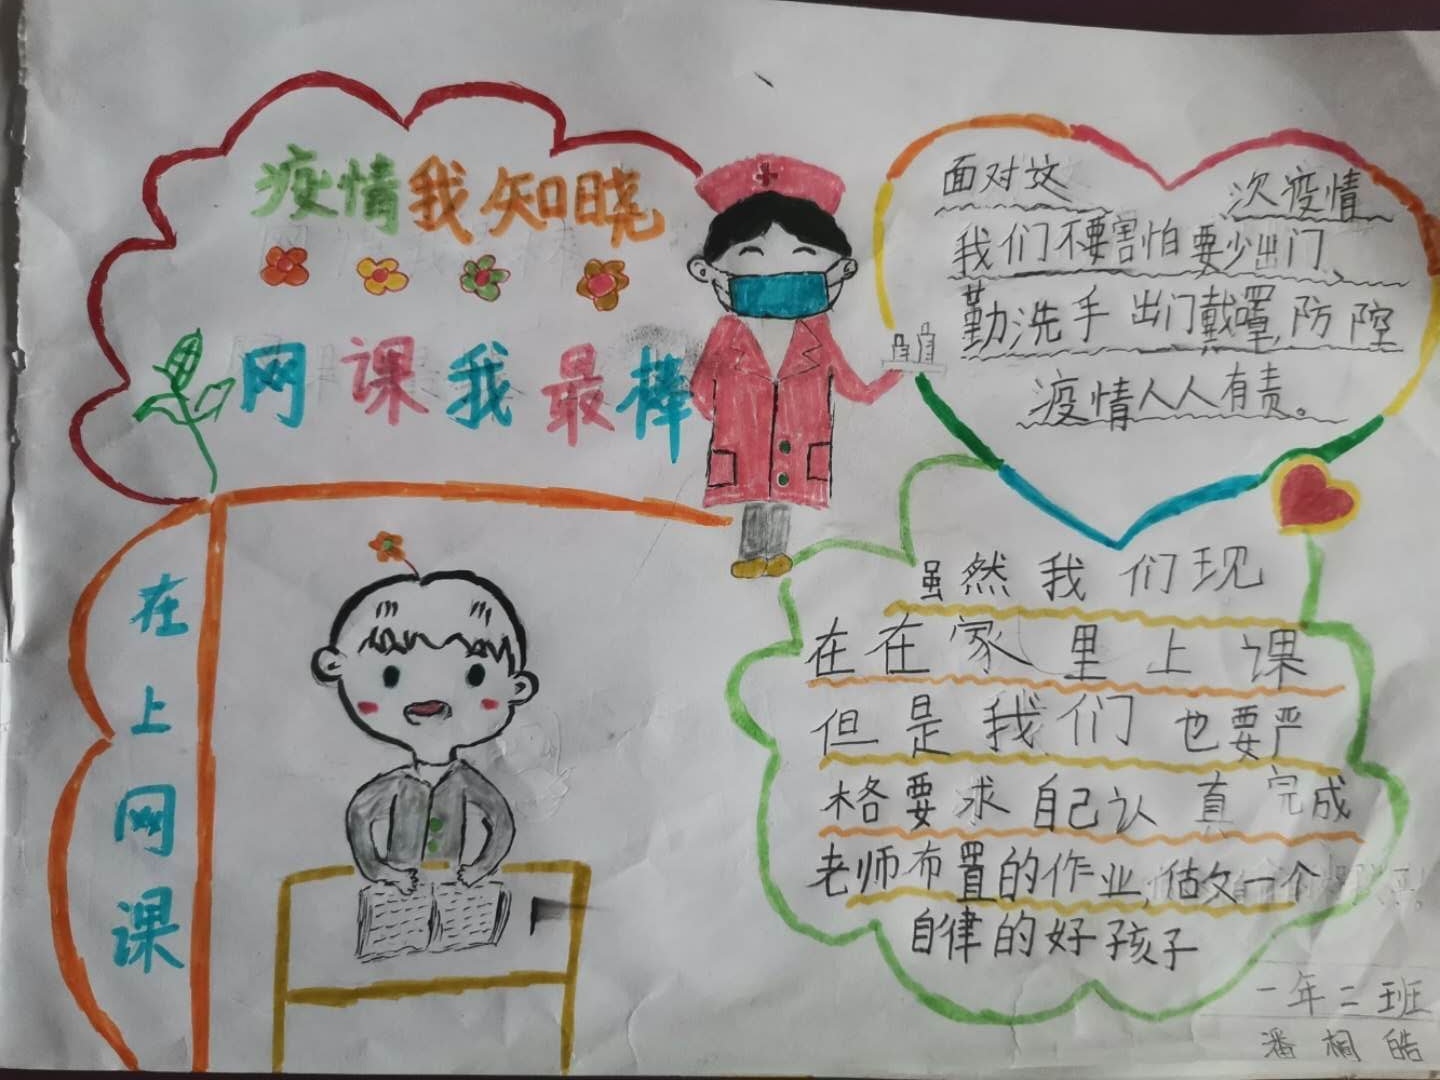 疫情我知晓
网课我最棒
面对这次疫情
我们不要害怕要少出门、
勤洗手出门戴罩,防控
疫情人人有责。
在上网课
虽然我们现
在在家里上课
但是我们也要严
格要求自己认真完成
老师布置的作业,做一个
自律的好孩子
一年二班
潘桐皓